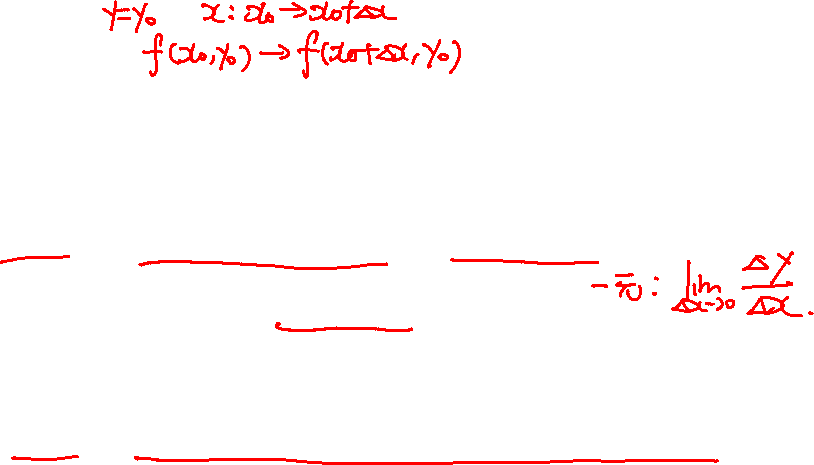 y=y₀ x: x₀→x₀+Δx
f(x₀,y₀)→f(x₀+Δx,y₀)
一元: lim Δx→0 Δy/Δx.